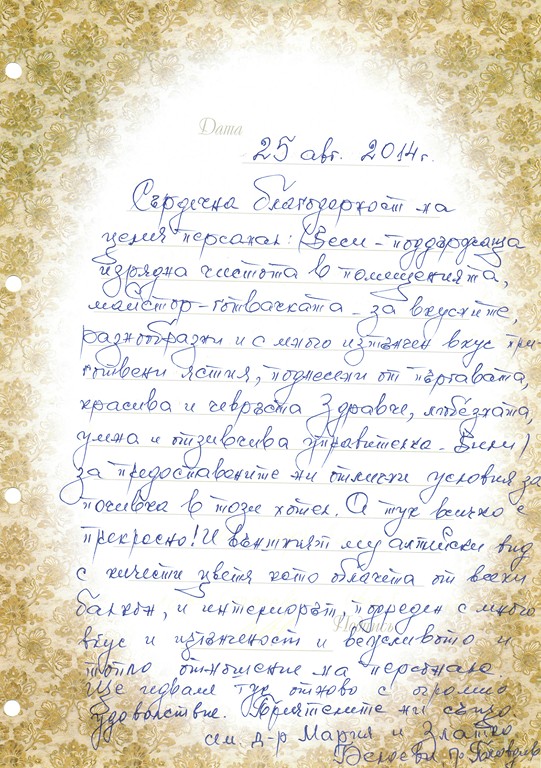 Дата
25 авг. 2014г.
Сърдечна благодарност на
целия персонал: (Веси - поддържаща
изрядна чистота в помещенията,
майстор-готвачката - за вкусните,
разнообразни и с много изтънчен вкус при-
готвени ястия, поднесени от пъргавата,
красива и чевръста Здравче, любезната,
умна и отзивчива управителка - Вили)
за предоставените ни отлични условия за
почивка в този хотел. А тук всичко е
прекрасно! И външният му алпийски вид
с кичести цветя като облачета от всеки
балкон, и интериорът, подреден с много
вкус и изтънченост и вежливото и
топло отношение на персонала.
Ще идваме тук отново с огромно
удоволствие. Приятелите ни също.
сем. д-р Мария и Златко